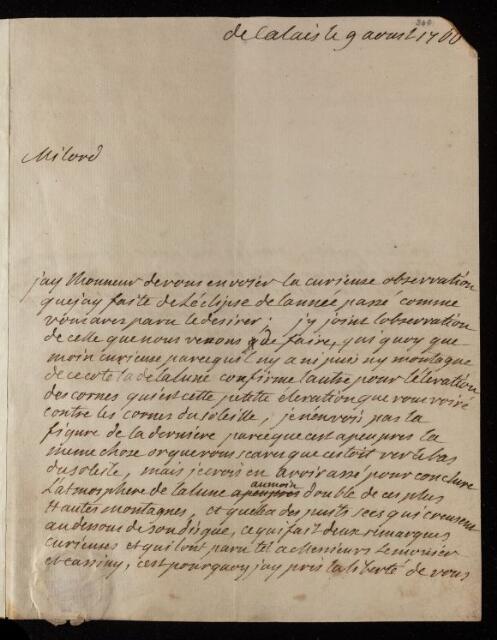 360
de Calais le 9 avril 1760
Milord
j'ay l'honneur de vous envoier la curieuse observation
que j'ay faite de l'éclipse de l'année passé comme
vous avez paru le desirer; j'y joint l'observation
de celle que nous venons de faire, qui quoy que
moin curieuse parcequ'il ny a ni puis ny montagne
de ce coté la de la lune confirme l'autre pour l'élevation
des cornes qui est cette petite élevation que vous voiré
contre les cornes du soleille; je n'envois pas la
figure de la derniere parceque cest apeupres la
meme chose or que vous scavez que cestoit vers le bas
du soleile, mais je crois en avoir assé pour conclure
L'atmosphere de la lune aumoin double de ces plus
hautes montagnes, et quelle a des puits secs qui creusent
au dessous de son disque, ce qui fait deux remarques
curieuses et qui l'ont paru tel a Messieurs Lemonier
et Cassiny, c'est pourquoy j'ay pris la liberté de vous